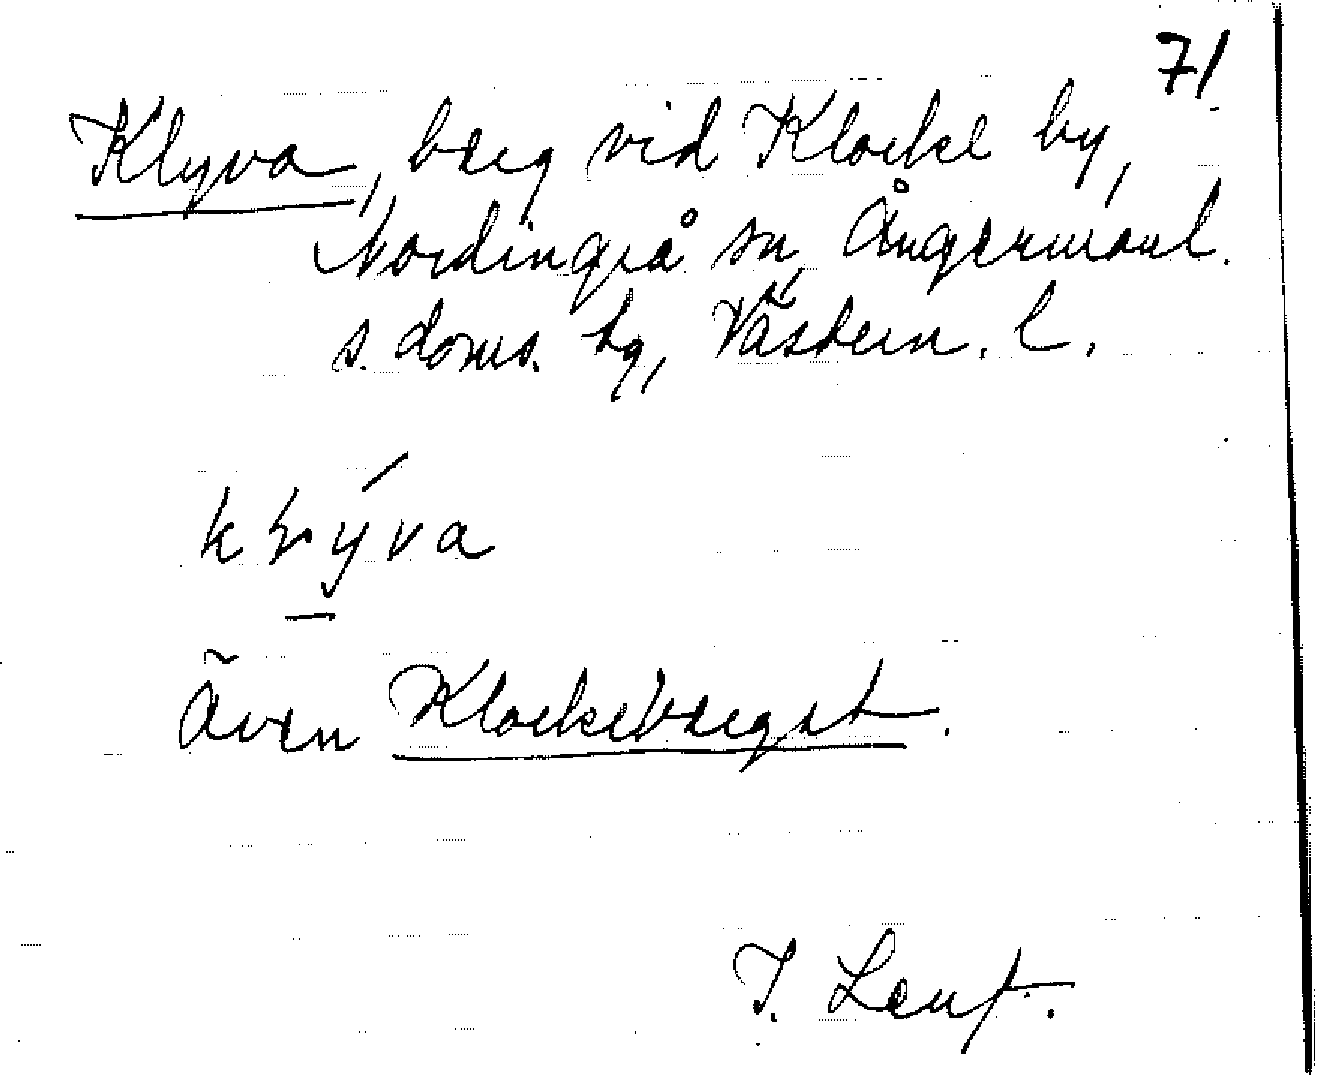 71.
Klyva, berg vid Klocke by,
Nordingrå sn, Ångermanl.
s. doms. tg, Västern. l.
kłýva
även Klockeberget.